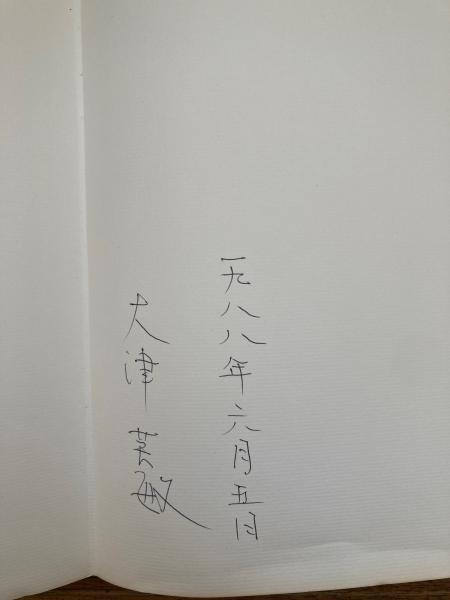 一九八八年六月五日
大津英敏